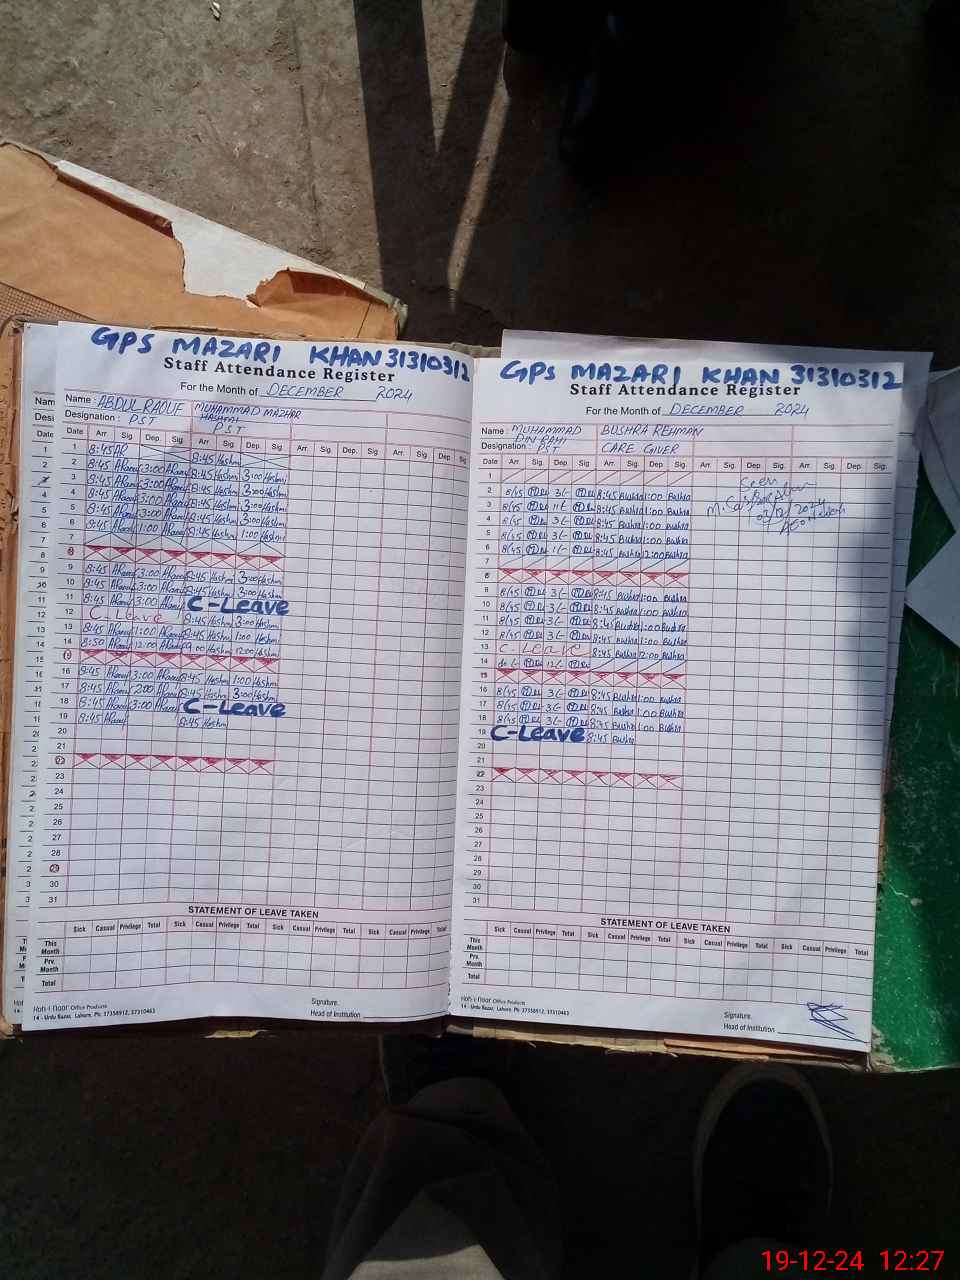 GPS MAZARI KHAN 31310312
Staff Attendance Register
For the Month of DECEMBER 2024
Name : ABDUL RAOUF MUHAMMAD MAZHAR HASHMI
Designation : PST PST
Date Arr Sig Dep. Sig. Arr Sig Dep. Sig. Arr. Sig. Dep. Sig. Arr. Sig. Dep. Sig
1
2 8:45 3:00 8:45 Hashmi 3:00 Hashmi
3 8:45 3:00 8:45 Hashmi 3:00 Hashmi
4 8:45 3:00 8:45 Hashmi 3:00 Hashmi
5 8:45 3:00 8:45 Hashmi 3:00 Hashmi
6 8:45 1:00 8:45 Hashmi 1:00 Hashmi
7
8
9 8:45 3:00 8:45 Hashmi 3:00 Hashmi
10 8:45 3:00 8:45 Hashmi 3:00 Hashmi
11 8:45 3:00 C-Leave
12 C-Leave 8:45 Hashmi 3:00 Hashmi
13 8:45 1:00 8:45 Hashmi 1:00 Hashmi
14 8:50 12:00 9:00 Hashmi 12:00 Hashmi
15
16 8:45 3:00 8:45 Hashmi 1:00 Hashmi
17 8:45 2:00 8:45 Hashmi 3:00 Hashmi
18 8:45 3:00 C-Leave
19 8:45 8:45 Hashmi
20
21
22
23
24
25
26
27
28
29
30
31
STATEMENT OF LEAVE TAKEN
Sick Casual Privilege Total Sick Casual Privilege Total Sick Casual Privilege Total Sick Casual Privilege Total
This Month
Prv. Month
Total
Office Products
14 - Urdu Bazar, Lahore. Ph: 37358912, 37310463
Signature.
Head of Institution
GPS MAZARI KHAN 31310312
Staff Attendance Register
For the Month of DECEMBER 2024
Name : MUHAMMAD DIN RAHI BUSHRA REHMAN
Designation : PST CARE GIVER
Date Arr. Sig. Dep. Sig. Arr. Sig. Dep. Sig. Arr. Sig. Dep. Sig. Arr. Sig. Dep. Sig.
1
2 8/45 3/- 8:45 Bushra 1:00 Bushra
3 8/45 11/- 8:45 Bushra 1:00 Bushra
4 8/45 3/- 8:45 Bushra 1:00 Bushra
5 8/45 3/- 8:45 Bushra 1:00 Bushra
6 8/45 1/- 8:45 Bushra 12:00 Bushra
7
8
9 8/45 3/- 8:45 Bushra 1:00 Bushra
10 8/45 3/- 8:45 Bushra 1:00 Bushra
11 8/45 3/- 8:45 Bushra 1:00 Bushra
12 8/45 3/- 8:45 Bushra 1:00 Bushra
13 C-Leave 8:45 Bushra 12:00 Bushra
14 12/-
15
16 8/45 3/- 8:45 Bushra 1:00 Bushra
17 8/45 3/- 8:45 Bushra 1:00 Bushra
18 8/45 3/- 8:45 Bushra 1:00 Bushra
19 C-Leave 8:45 Bushra
20
21
22
23
24
25
26
27
28
29
30
31
Seen
STATEMENT OF LEAVE TAKEN
Sick Casual Privilege Total Sick Casual Privilege Total Sick Casual Privilege Total Sick Casual Privilege Total
This Month
Prv. Month
Total
Office Products
14 - Urdu Bazar, Lahore. Ph: 37358912, 37310463
Signature.
Head of Institution
19-12-24 12:27